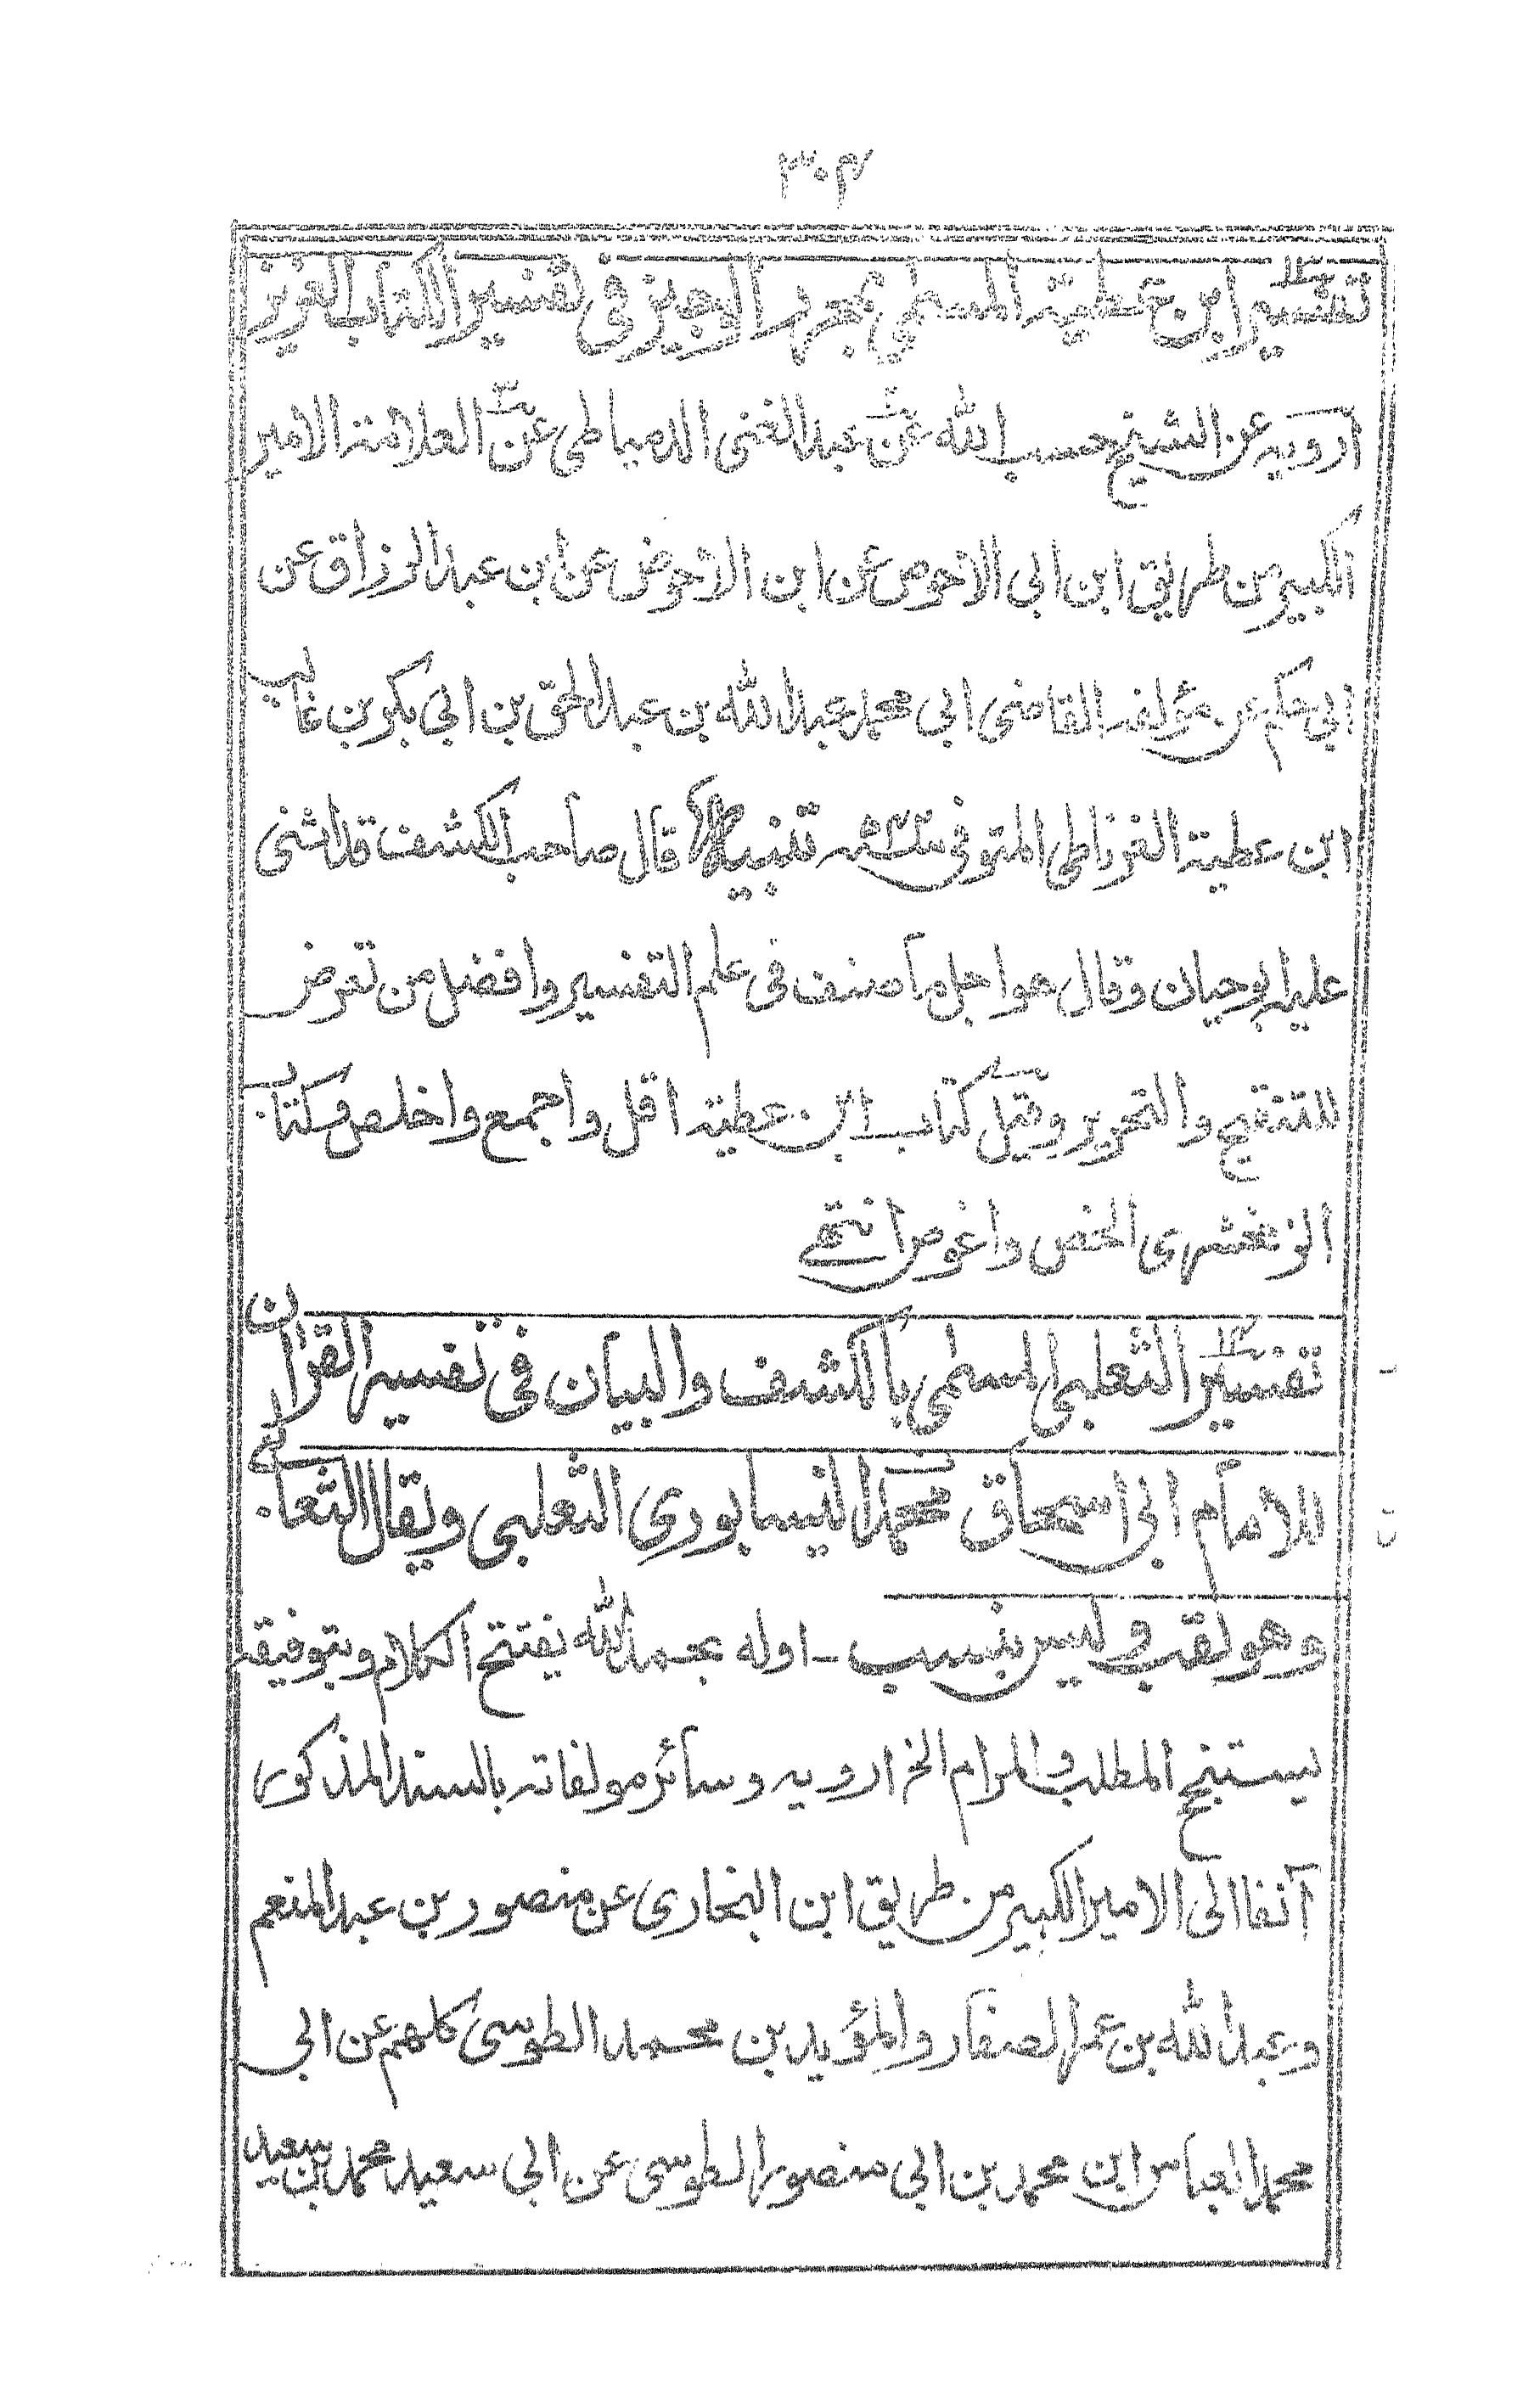 ٣٠٣
تفسير ابن عطية المسمى بمحرر الوجيز فى تفسير الكتاب العزيز
ارويه عن الشيخ حسب الله عن عبد الغنى الدمياطى عن العلامة الامير
الكبير من طريق ابن ابى الاحوص عن ابن الاحوص عن ابن عبد الرزاق عن
ابى حكم عن مؤلفه القاضى ابى محمد عبد الله بن عبد الحق بن ابى بكر بن غالب
ابن عطية الغرناطى المتوفى سنة تنبيه قال صاحب الكشف قد اثنى
عليه ابو حيان وقال هو اجل ما صنف فى علم التفسير وافضل من تعرض
للتنقيح والتحرير وقيل كتاب ابن عطية اقل واجمع واخلص وكتاب
الزمخشرى الخص واغوص انتهى
تفسير الثعلبى المسمى بالكشف والبيان فى تفسير القران
للامام ابى اسحاق محمد النيسابورى الثعلبى ويقال الثعالبى
وهو لقب و ليس بنسب - اوله بحمد الله يفتتح الكلام وبتوفيقه
يستنجح المطلب والمرام الخ ارويه وسائر مولفاته بالسند المذكور
آنفا الى الامير الكبير من طريق ابن البخارى عن منصور بن عبد المنعم
وعبد الله بن عمر الصفار والمؤيد بن محمد الطوسى كلهم عن ابى
محمد العباس ابن محمد بن ابى منصور الطوسى عن ابى سعيد محمد بن سعيد